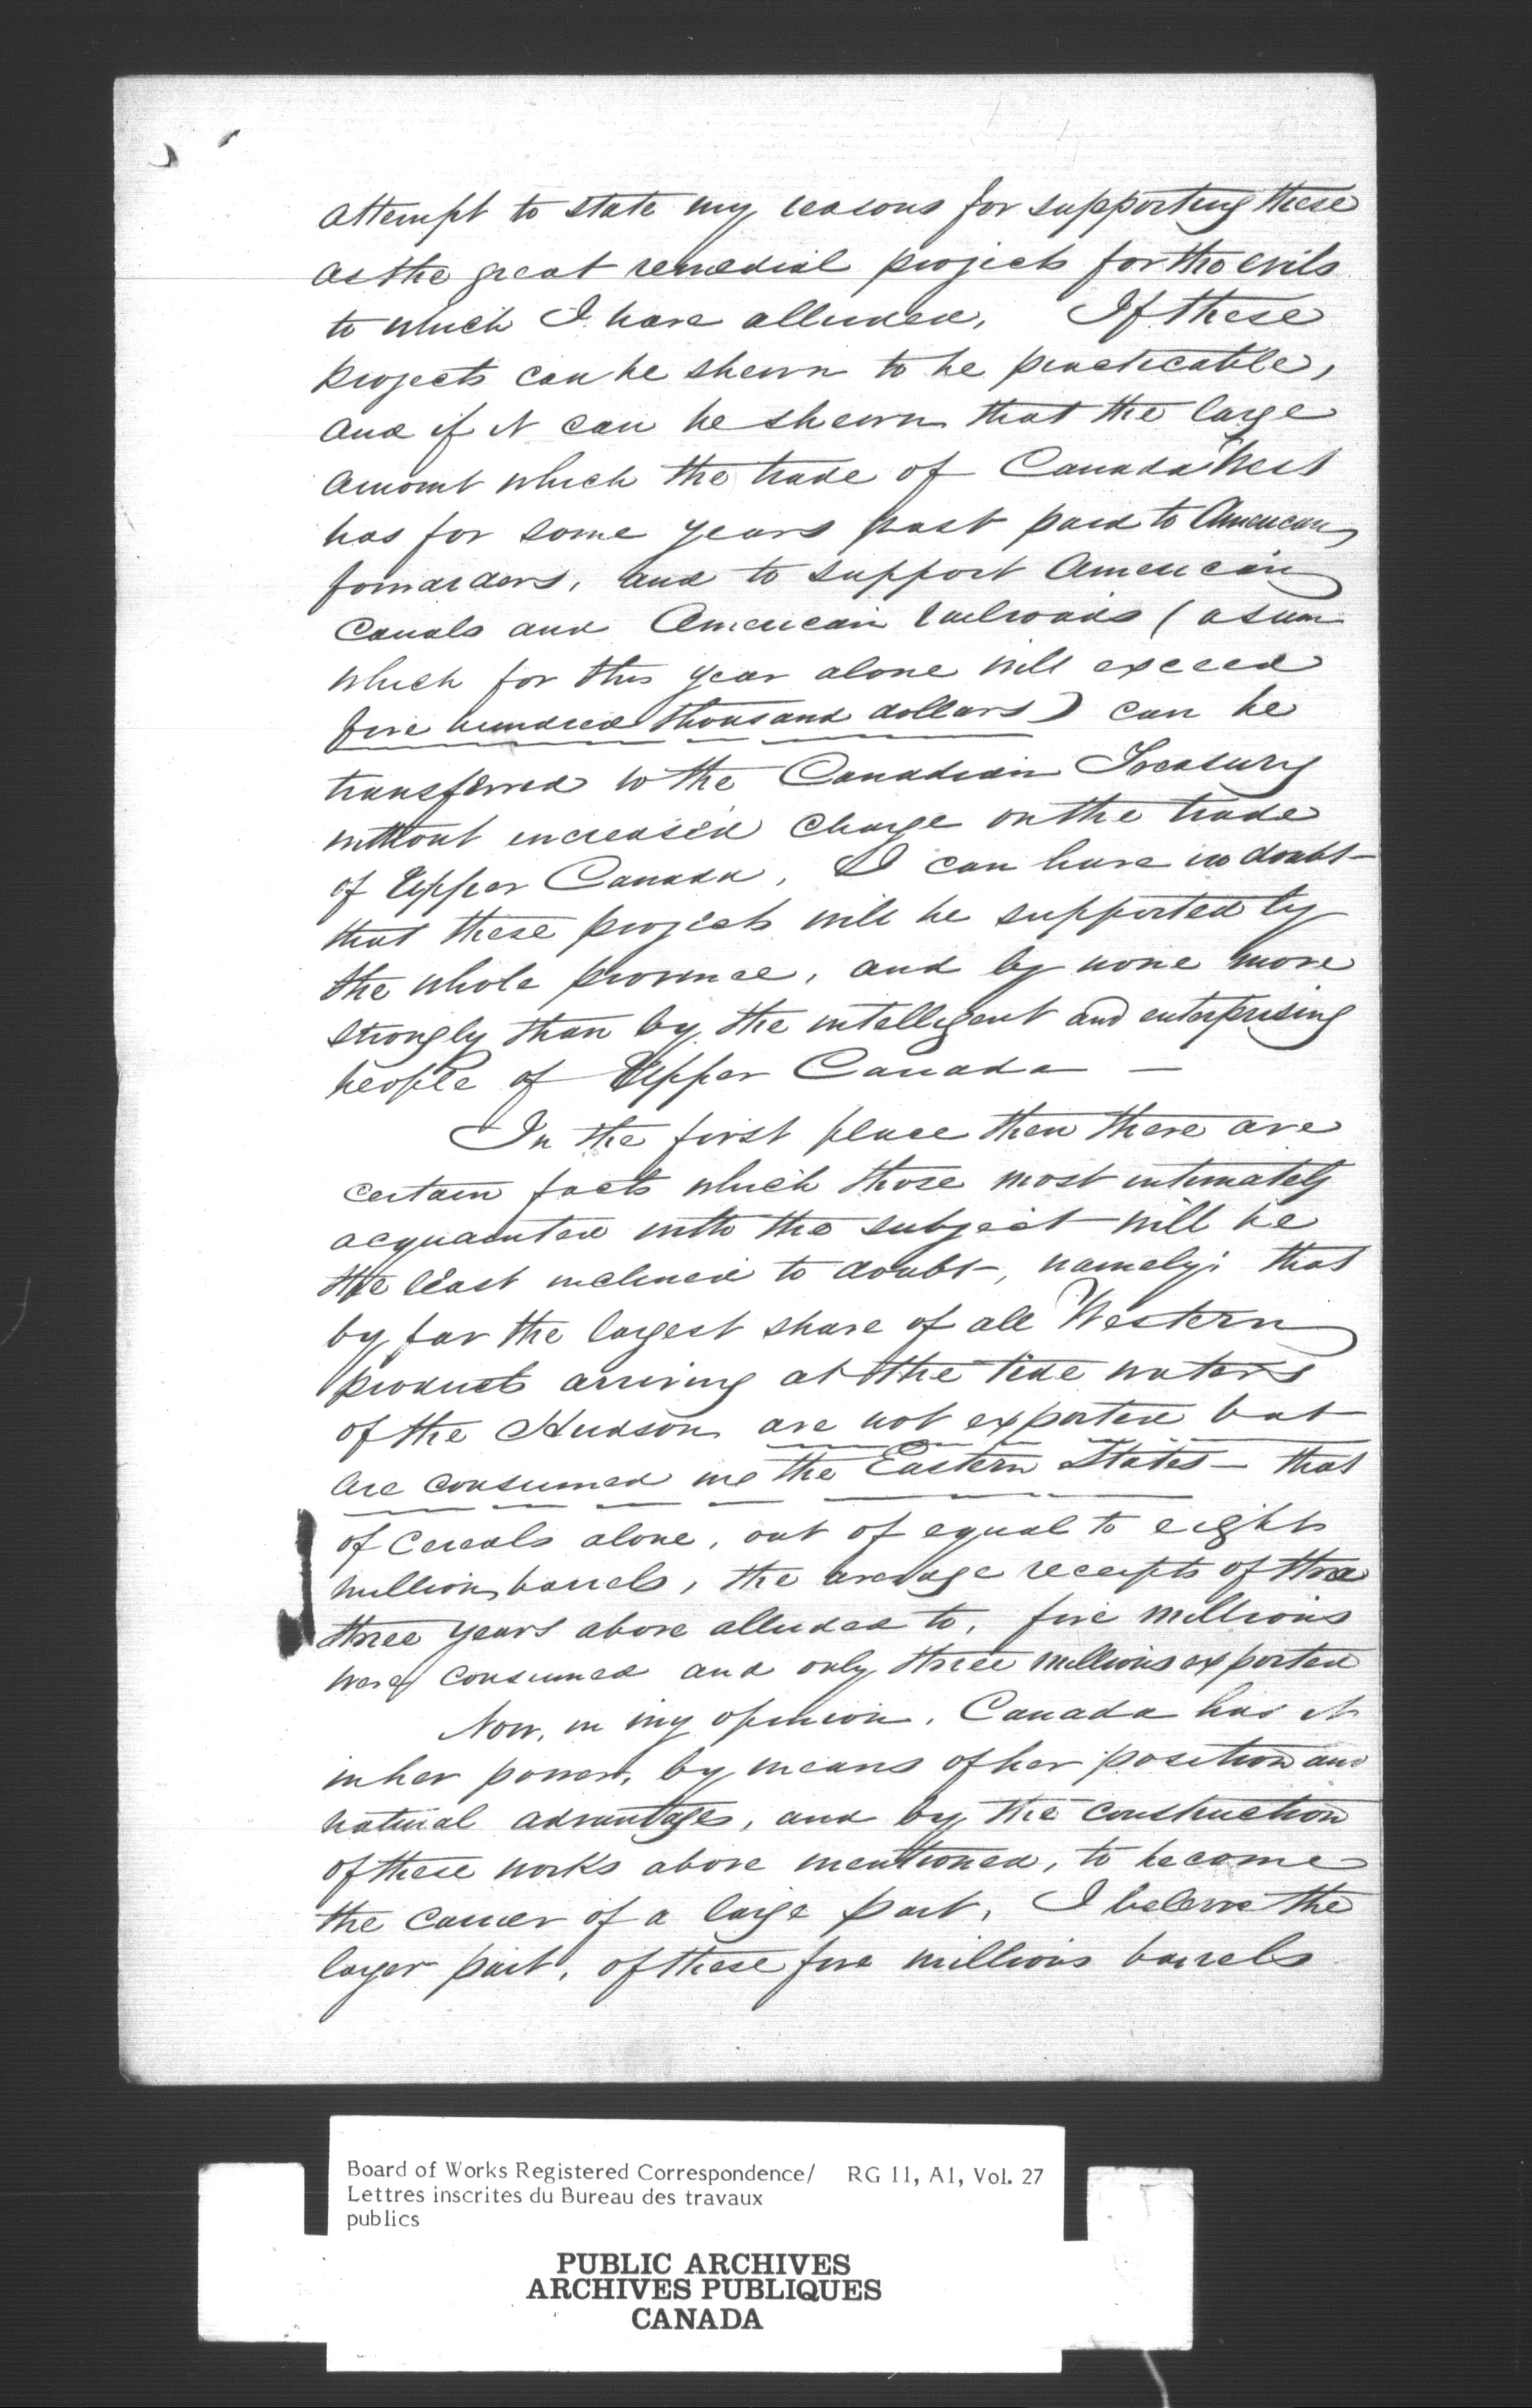 attempt to state my reasons for supporting these
as the great remedial projects for the evils
to which I have alluded. If these
projects can be shewn to be practicable,
and if it can be shewn that the large
amount which the trade of Canada West
has for some years past paid to American
forwarders, and to support American
Canals and American railroads (a sum
which for this year alone will exceed
five hundred thousand dollars) can be
transferred to the Canadian Treasury
without increased charge on the trade
of Upper Canada, I can have no doubt
that these projects will be supported by
the whole province, and by none more
strongly than by the intelligent and enterprising
people of Upper Canada —
In the first place then there are
certain facts which those most intimately
acquainted with the subject will be
the least inclined to doubt, namely; that
by far the largest share of all Western
products arriving at the tide waters
of the Hudson are not exported but
are consumed in the Eastern States — that
of Cereals alone, out of equal to eight
million barrels, the average receipts of the
three years above alluded to, five millions
were consumed and only three millions exported
Now, in my opinion, Canada has it
in her power, by means of her position and
natural advantages, and by the construction
of these works above mentioned, to become
the carrier of a large part, I beleive the
larger part, of these five millions barrels
Board of Works Registered Correspondence/ RG 11, A1, Vol. 27
Lettres inscrites du Bureau des travaux
publics
PUBLIC ARCHIVES
ARCHIVES PUBLIQUES
CANADA